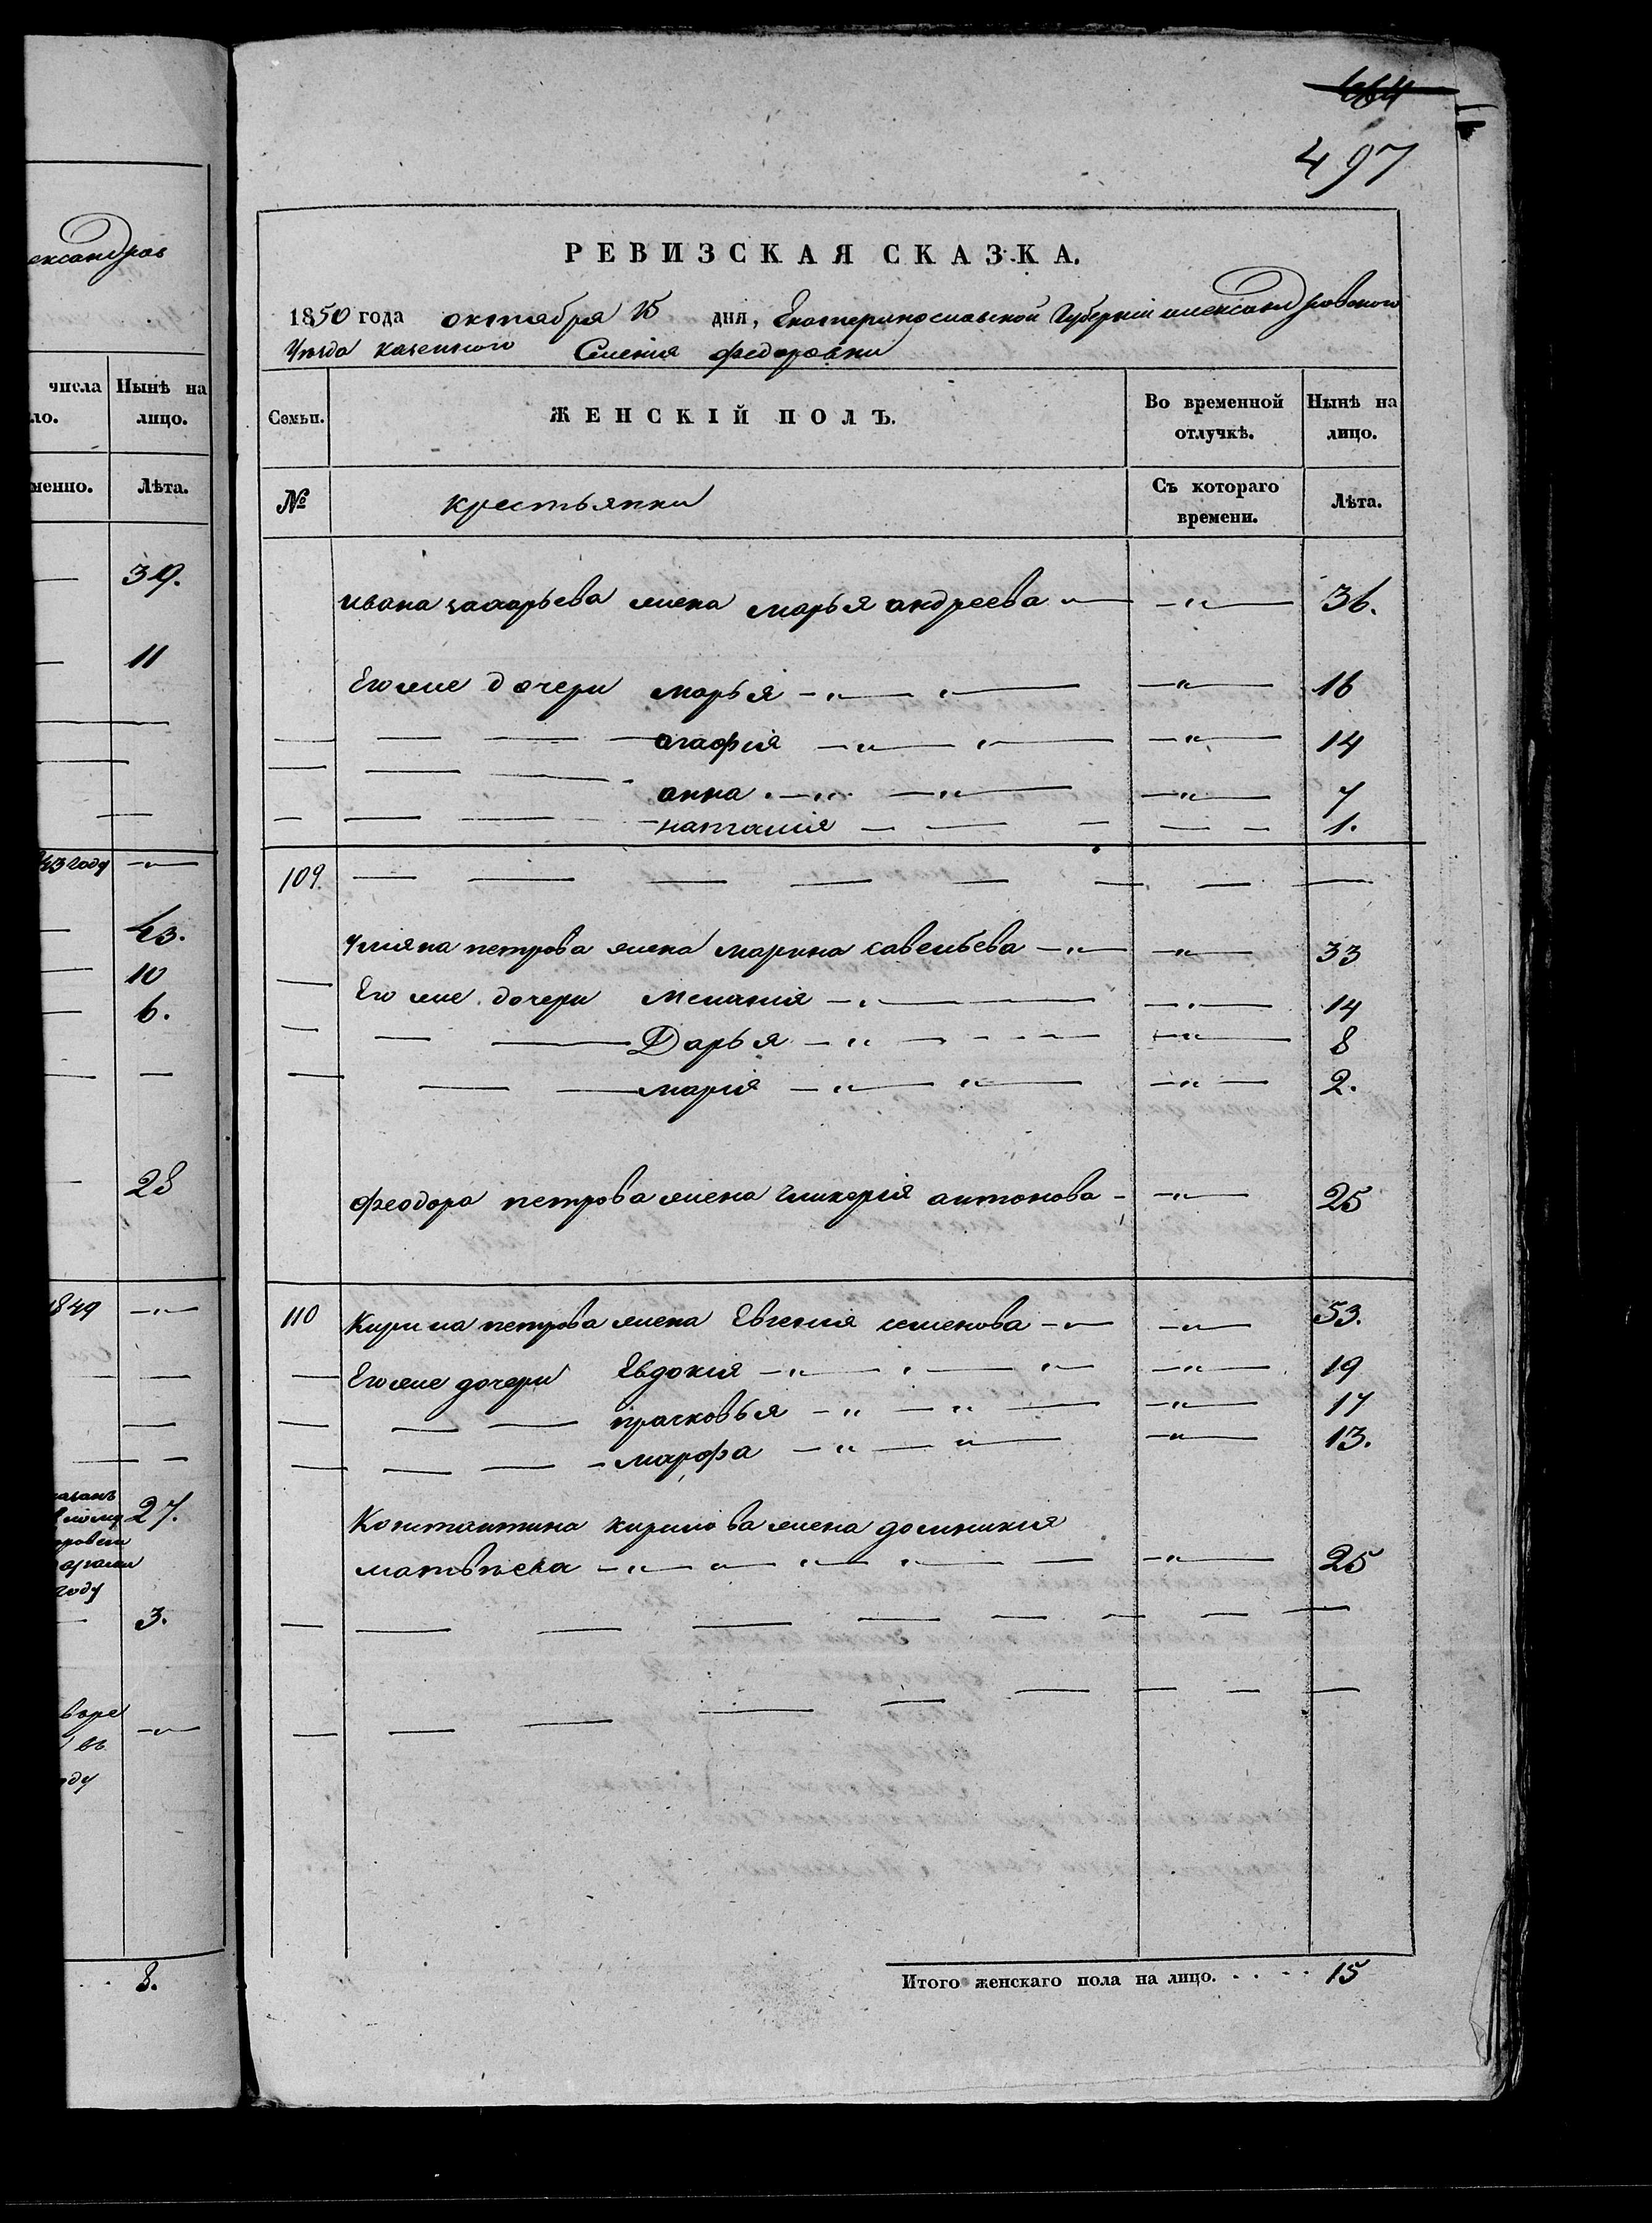 ександров
числа Нынѣ на
ло. лицо.
менно. Лѣта.
39.
11
43 году
43.
10
6.
28
1849
27.
году
3.
воре
въ
оду
8.
497
РЕВИЗСКАЯ СКАЗКА.
1850 года октября 15 дня, Екатеринославской Губерніи александровского
Уѣзда казенного Селенія федоровки
Семьи. ЖЕНСКІЙ ПОЛЪ. Во временной отлучкѣ. Нынѣ на лицо.
№ крестьянки Съ котораго времени. Лѣта.
ивана захарьева жена марья андреева — „ — 36.
Его же дочери марья — „ — 16
агафія — „ — 14
анна — „ — 7
наталия — 1.
109.
Уліяна петрова жена марина савельева — „ — 33
Его же дочери Мелания — „ — 14
Дарья — „ — 8
марія — „ — 2.
феодора петрова жена гликерія антонова — „ — 25
110 Кирила петрова жена Евгения семенова — „ — 53.
Его же дочери Евдокия — „ — 19
прасковья — „ — 17
марфа — „ — 13.
Константина кирилова жена домникия
матвѣева — „ — 25
Итого женскаго пола на лицо. . . . . 15